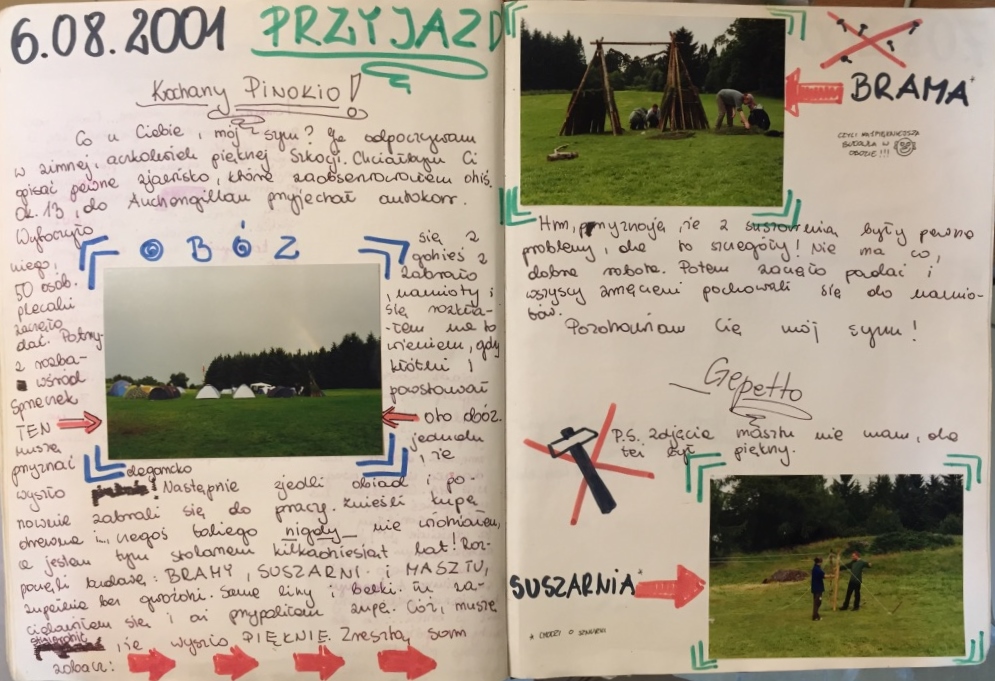 6.08.2001 PRZYJAZD
Kochany PINOKIO!
Co u Ciebie, mój synu? Ja odpoczywam
w zimnej, aczkolwiek pięknej Szkocji. Chciałbym Ci
opisać pewne zjawisko, które zaobserwowałem dziś.
Ok. 13, do Auchengillan przyjechał autokar.
Wytoczyło się z
OBÓZ
niego, gdzieś z
50 osób. zabrało
plecaki , namioty i
zaczęło się rozkła-
dać. Patrzy- łem na to
z rozba- wieniem, gdy
wśród kłótni i
sprzeczek powstawał
TEN oto obóz.
Muszę jednak
przyznać , że
wyszło elegancko! Następnie zjedli obiad i po-
nownie zabrali się do pracy. Znieśli kupę
drewna i... czegoś takiego nigdy nie widziałem,
a jestem tym stolarzem kilkadziesiąt lat! Roz-
poczęli budowę: BRAMY, SUSZARNI i MASZTU,
zupełnie bez gwoździ. Same liny i belki. Tu za-
ciąłem się i aż przypaliłem zupę. Cóż, muszę
, że wyszło PIĘKNIE. Zresztą sam
zobacz:
BRAMA*
CZYLI NAJPIĘKNIEJSZA
BUDOWLA W
OBOZIE!!!
Hm, przyznaję, że z suszarnią były pewne
problemy, ale to szczegóły! Nie ma co,
dobra robota. Potem zaczęło padać i
wszyscy zmęczeni pochowali się do namio-
tów.
Pozdrawiam Cię mój synu!
Gepetto
P.S. Zdjęcia masztu nie mam, ale
też był piękny.
SUSZARNIA*
* CHODZI O